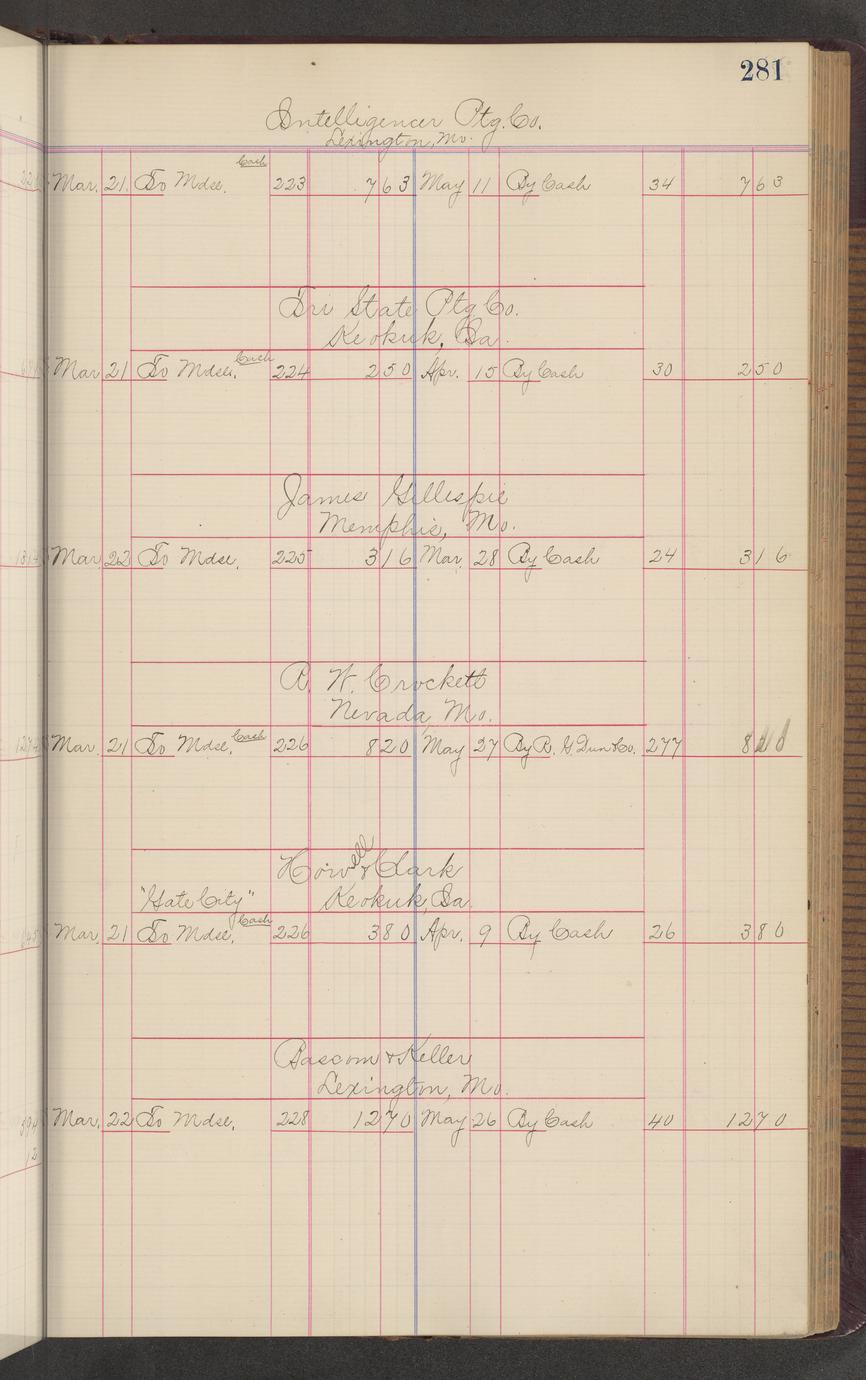 281
Intelligencer Ptg. Co.
Lexington, Mo.
Cash
Mar. 21. To Mdse. 223 7 63 May 11 By Cash 34 7 63
Tri State Ptg Co.
Keokuk, Ia.
Cash
Mar 21 To Mdse. 224 2 50 Apr. 15 By Cash 30 2 50
James Gillespie
Memphis, Mo.
Mar 22 To Mdse. 225 3 16 Mar 28 By Cash 24 3 16
R. W. Crockett
Nevada, Mo.
Cash
Mar. 21 To Mdse. 226 8 20 May 27 By R. G. Dun & Co. 277 8
Howell & Clark
"Gate City" Keokuk, Ia.
Cash
Mar. 21 To Mdse. 226 3 80 Apr. 9 By Cash 26 3 80
Bascom & Keller
Lexington, Mo.
Mar. 22 To Mdse. 228 12 70 May 26 By Cash 40 12 70